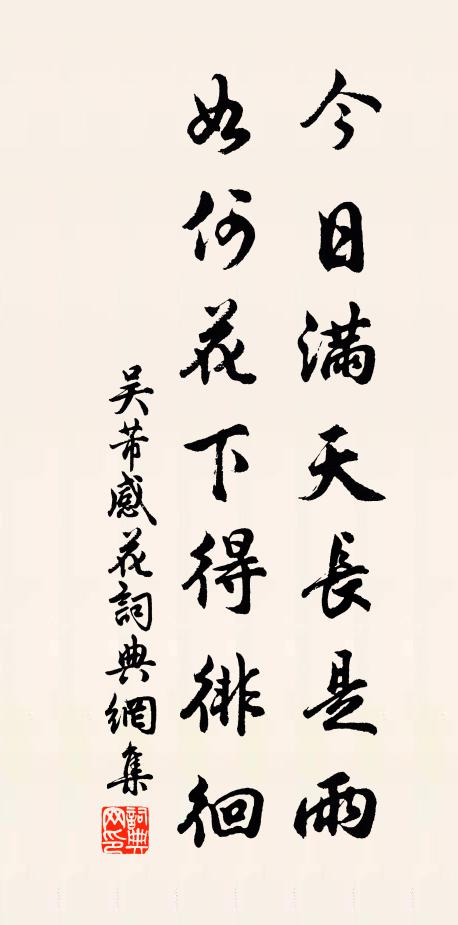 今日滿天長是雨
如何花下得徘徊
吳芾感花詞典網集
詞典網印